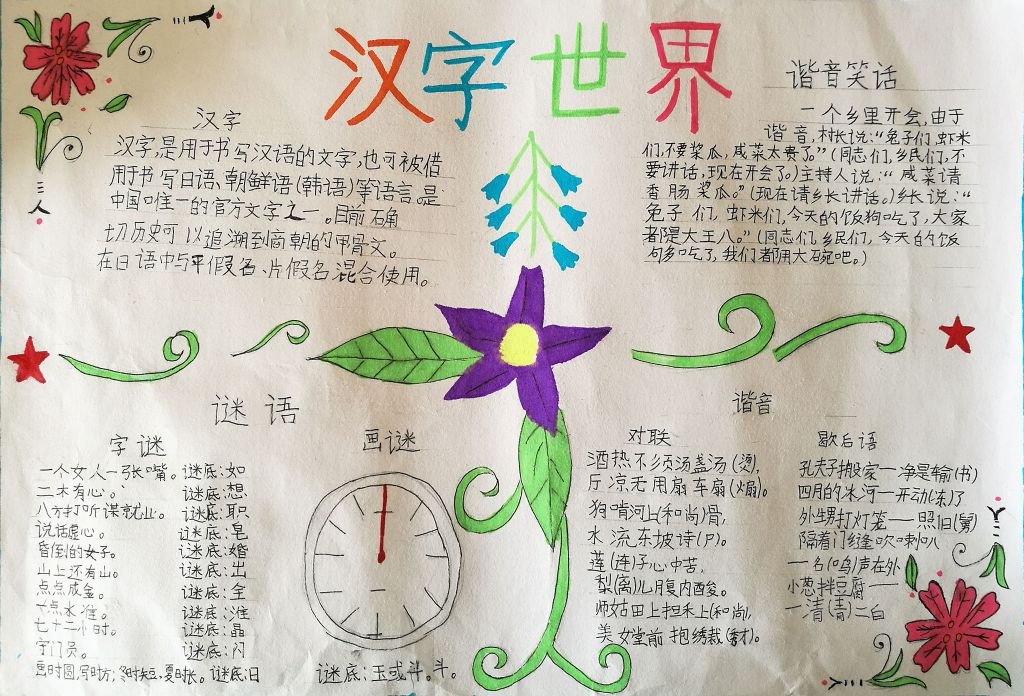 汉字世界
汉字
汉字,是用于书写汉语的文字,也可被借
用于书写日语、朝鲜语(韩语)等语言。是
中国唯一的官方文字之一。目前确
切历史可以追溯到商朝的甲骨文。
在日语中与平假名、片假名混合使用。
谐音笑话
一个乡里开会,由于
谐音,村长说:“兔子们,虾米
们,不要桨瓜,咸菜太贵了。”(同志们,乡民们,不
要讲话,现在开会了。)主持人说:“咸菜请
香肠桨瓜。”(现在请乡长讲话。)乡长说:“
兔子们,虾米们,今天的饭狗吃了,大家
都是大王八。”(同志们,乡民们,今天的饭
够吃了,我们都用大碗吧。)
谜语
字谜
一个女人一张嘴。谜底:如
二木有心。谜底:想
八方打听谋就业。谜底:职
说话虚心。谜底:皂
昏倒的女子。谜底:婚
山上还有山。谜底:出
点点成金。谜底:全
一点水准。谜底:淮
七十二小时。谜底:晶
守门员。谜底:闪
画时圆,写时方;冬时短,夏时长。谜底:日
画谜
谜底:玉或斗。斗。
谐音
对联
酒热不须汤盏汤(烫),
厅凉无用扇车扇(火扇)。
狗啃河上(和尚)骨,
水流东坡诗(尸)。
莲(连)子心中苦,
梨(离)儿腹内酸。
师姑田上担禾上(和尚),
美女堂前抱绣裁(秀才)。
歇后语
孔夫子搬家—净是输(书)
四月的冰河—开动(冻)了
外甥打灯笼——照旧(舅)
隔着门缝吹喇叭
一名(鸣)声在外
小葱拌豆腐——
一清(青)二白